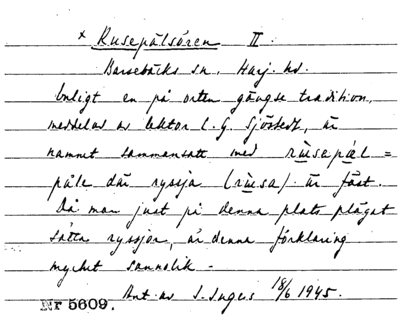 × Rusepålsören II.
Barsebäcks sn, Harj. hd.
Enligt en på orten gängse tradition,
meddelad av lektor C. G. Sjöstedt, är
namnet sammansatt med rusepål =
påle där ryssja (rusa) är fäst.
Då man just på denna plats plägat
sätta ryssjor, är denna förklaring
mycket sannolik –
Ant. av I. Ingers 18/6 1945.
Nr 5609.